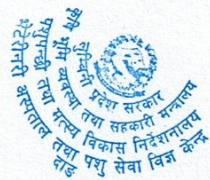 लुम्बिनी प्रदेश सरकार
कृषि भूमि व्यवस्था तथा सहकारी मन्त्रालय
पशुपन्छी तथा मत्स्य विकास निर्देशनालय
भेटेरीनरी अस्पताल तथा पशु सेवा विज्ञ केन्द्र
दाङ